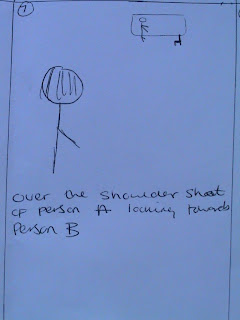 1
over the shoulder shoot
of person A looking towards
Person B